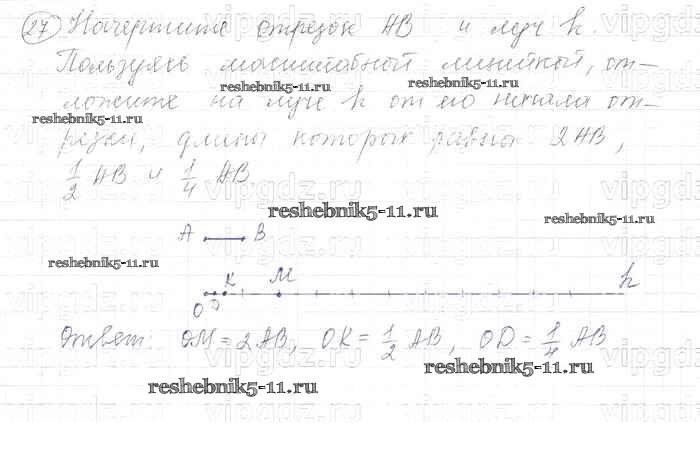 27 Начертите отрезок AB и луч h.
Пользуясь масштабной линейкой, от-
reshebnik5-11.ru reshebnik5-11.ru
ложите на луче h от его начала от-
reshebnik5-11.ru
резки, длины которых равны 2AB,
1/2 AB и 1/4 AB.
reshebnik5-11.ru
reshebnik5-11.ru
A B
reshebnik5-11.ru
K M h
O D
Ответ: OM = 2AB, OK = 1/2 AB, OD = 1/4 AB
reshebnik5-11.ru
reshebnik5-11.ru
vipgdz.ru